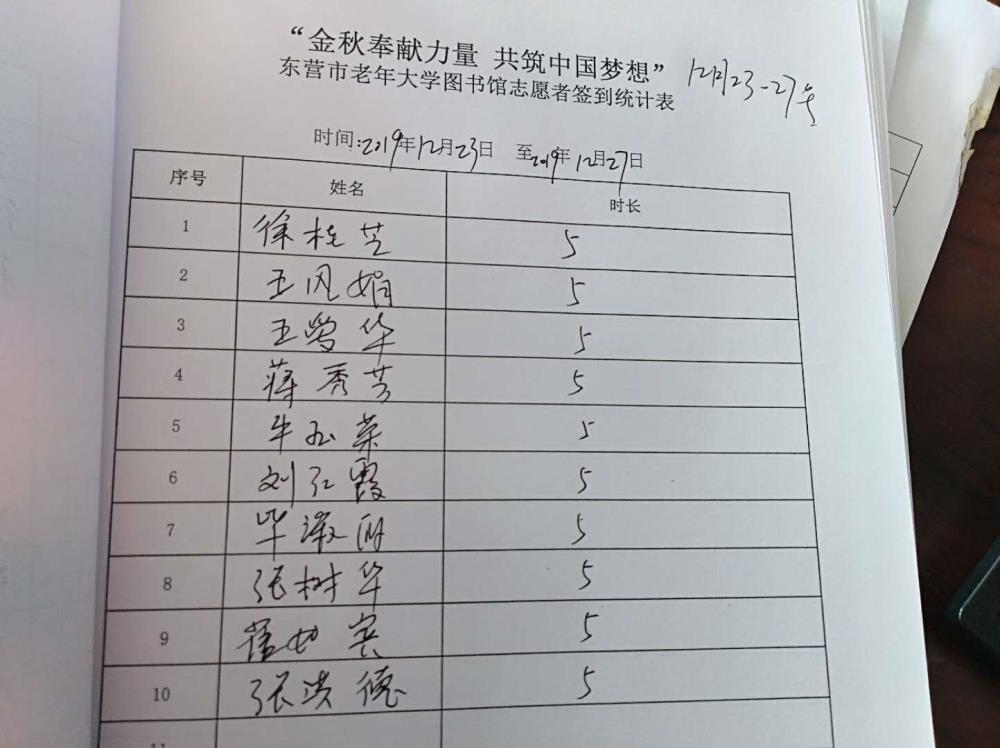 “金秋奉献力量 共筑中国梦想”
12月23-27号
东营市老年大学图书馆志愿者签到统计表
时间:2019年12月23日 至2019年12月27日
序号 姓名 时长
1 徐桂芝 5
2 王凤娟 5
3 王莺华 5
4 蒋秀芳 5
5 牛 荣 5
6 刘红霞 5
7 毕淑丽 5
8 张树华 5
9 5
10 张洪德 5
11